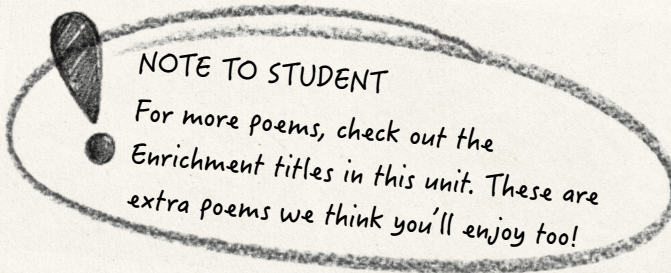 NOTE TO STUDENT
For more poems, check out the
Enrichment titles in this unit. These are
extra poems we think you'll enjoy too!